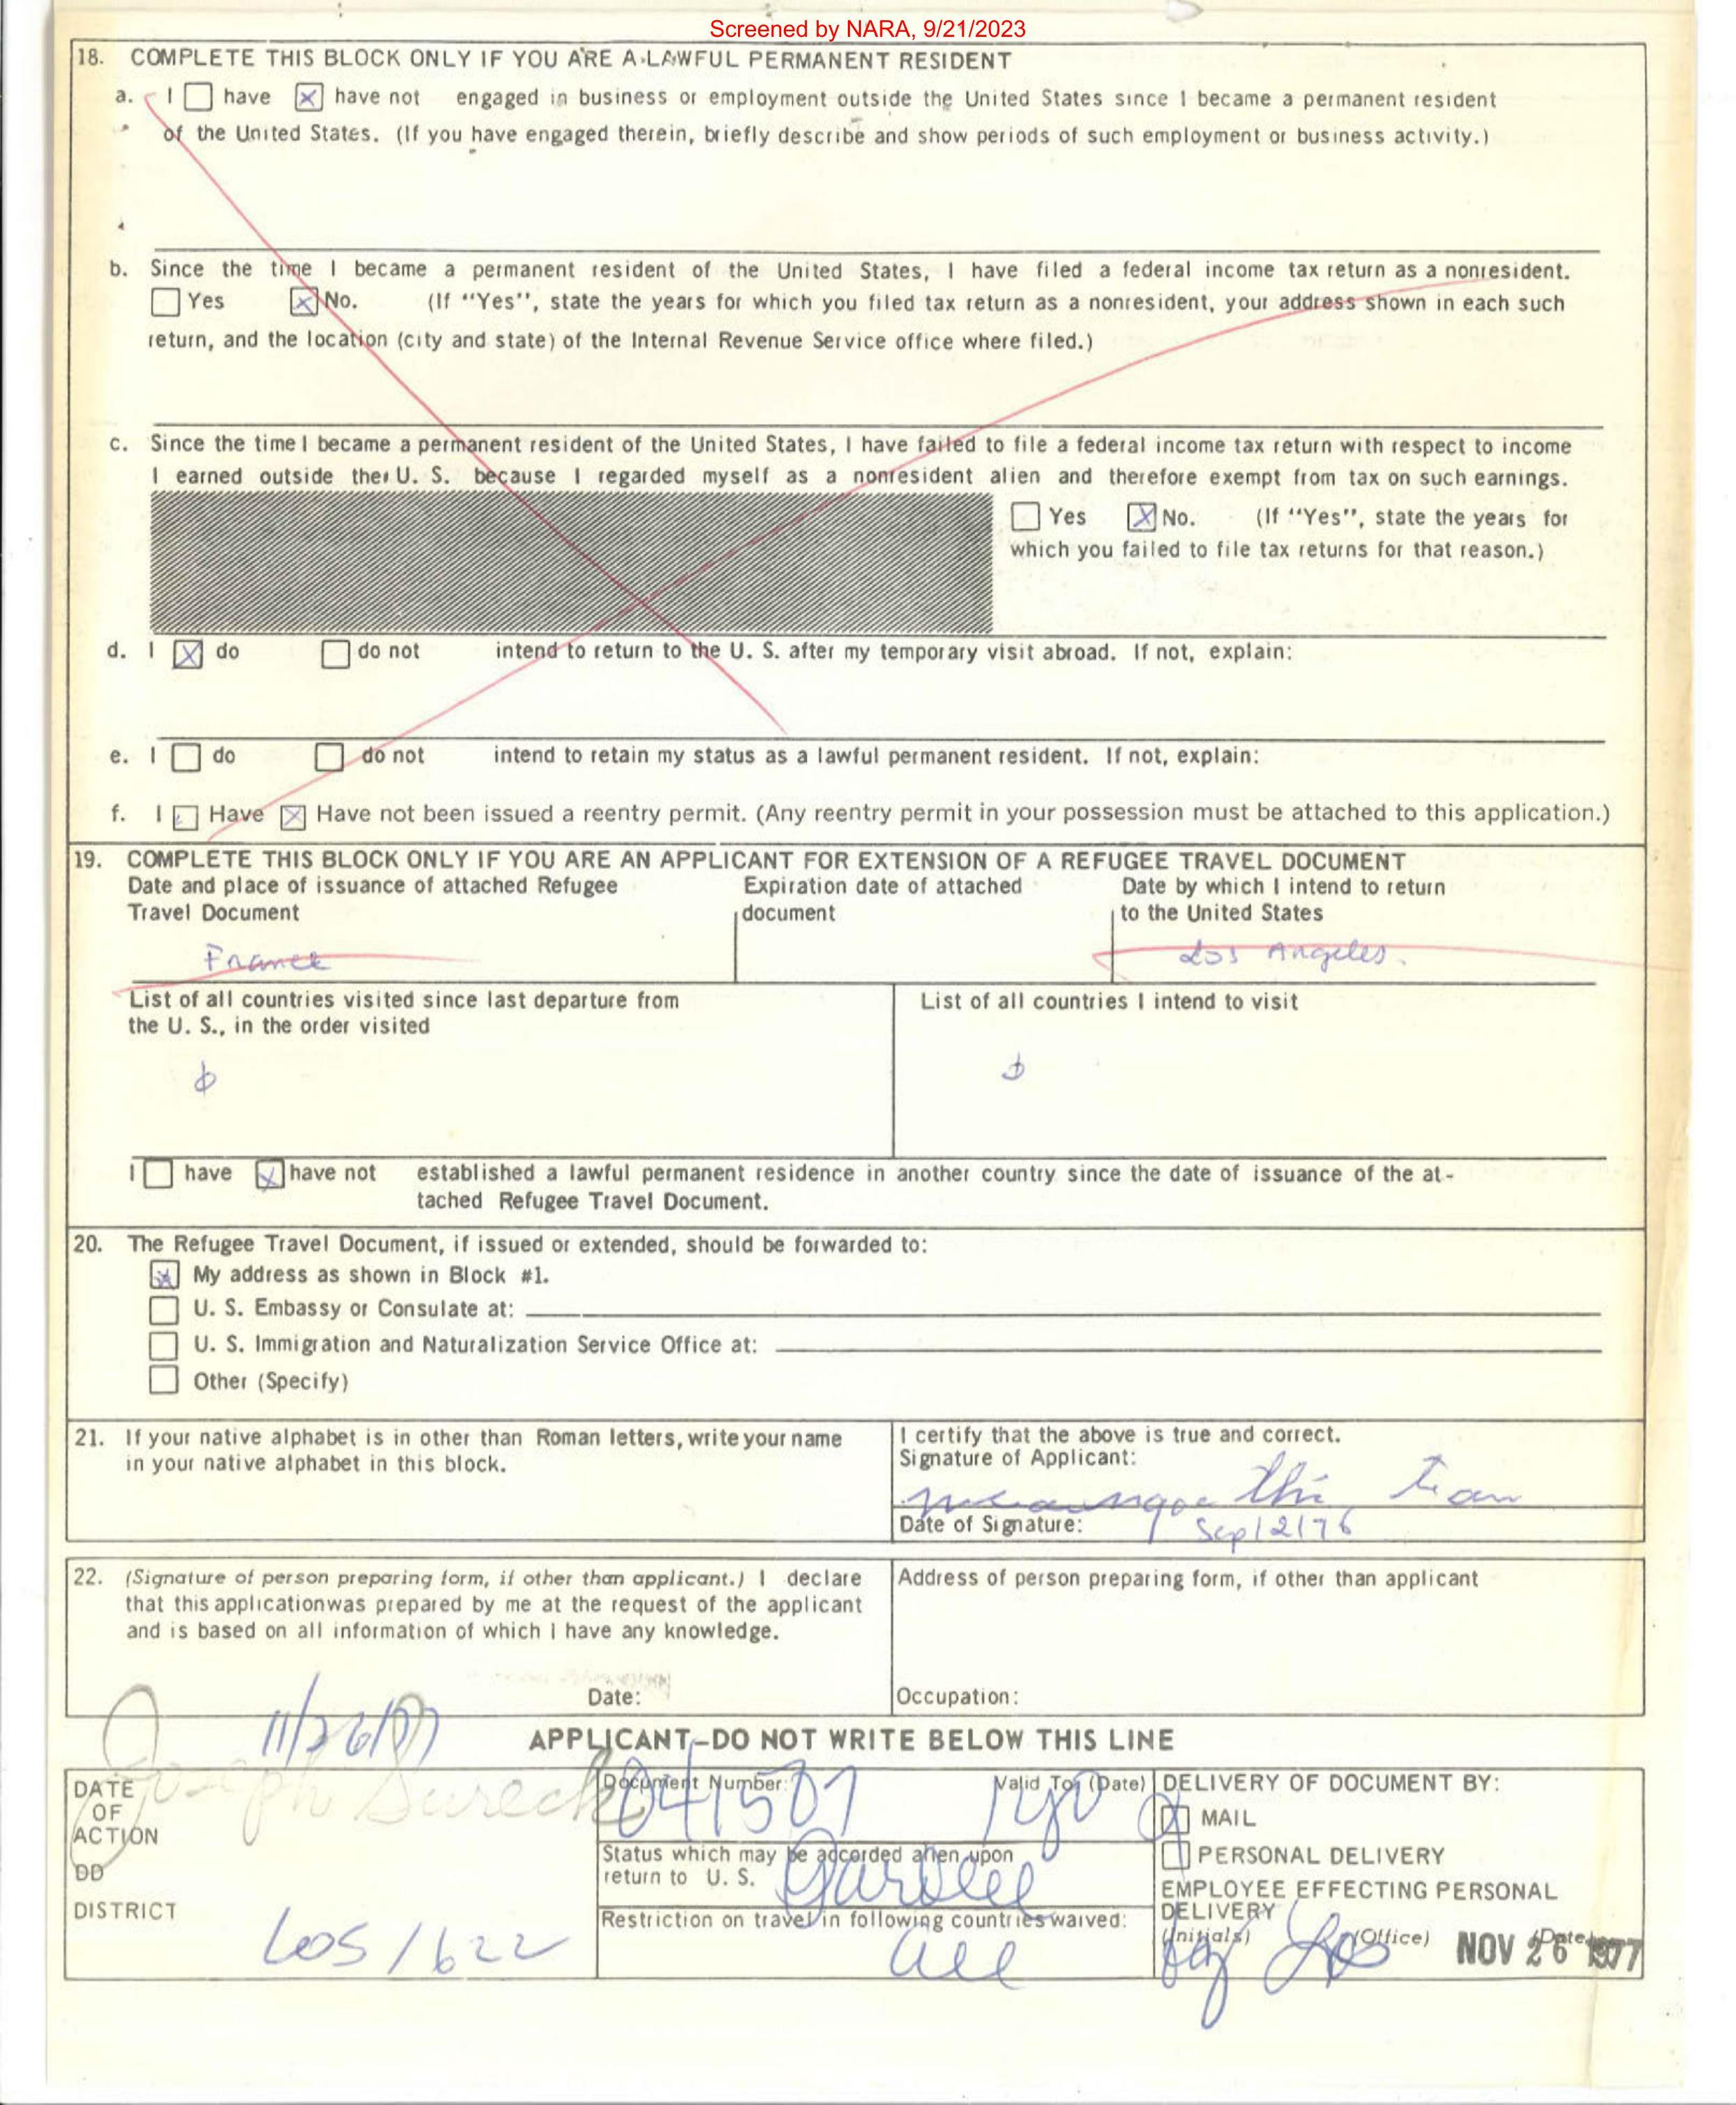 Screened by NARA, 9/21/2023
18. COMPLETE THIS BLOCK ONLY IF YOU ARE A LAWFUL PERMANENT RESIDENT
a. I ☐ have ☒ have not engaged in business or employment outside the United States since I became a permanent resident
of the United States. (If you have engaged therein, briefly describe and show periods of such employment or business activity.)
b. Since the time I became a permanent resident of the United States, I have filed a federal income tax return as a nonresident.
☐ Yes ☒ No. (If "Yes", state the years for which you filed tax return as a nonresident, your address shown in each such
return, and the location (city and state) of the Internal Revenue Service office where filed.)
c. Since the time I became a permanent resident of the United States, I have failed to file a federal income tax return with respect to income
I earned outside the U. S. because I regarded myself as a nonresident alien and therefore exempt from tax on such earnings.
☐ Yes ☒ No. (If "Yes", state the years for
which you failed to file tax returns for that reason.)
d. I ☒ do ☐ do not intend to return to the U. S. after my temporary visit abroad. If not, explain:
e. I ☐ do ☐ do not intend to retain my status as a lawful permanent resident. If not, explain:
f. I ☐ Have ☒ Have not been issued a reentry permit. (Any reentry permit in your possession must be attached to this application.)
19. COMPLETE THIS BLOCK ONLY IF YOU ARE AN APPLICANT FOR EXTENSION OF A REFUGEE TRAVEL DOCUMENT
Date and place of issuance of attached Refugee
Travel Document
France
Expiration date of attached
document
Date by which I intend to return
to the United States
Los Angeles.
List of all countries visited since last departure from
the U. S., in the order visited
List of all countries I intend to visit
I ☐ have ☒ have not established a lawful permanent residence in another country since the date of issuance of the at-
tached Refugee Travel Document.
20. The Refugee Travel Document, if issued or extended, should be forwarded to:
☒ My address as shown in Block #1.
☐ U. S. Embassy or Consulate at:
☐ U. S. Immigration and Naturalization Service Office at:
☐ Other (Specify)
21. If your native alphabet is in other than Roman letters, write your name
in your native alphabet in this block.
I certify that the above is true and correct.
Signature of Applicant:
Thi Tran
Date of Signature: Sep/2/76
22. (Signature of person preparing form, if other than applicant.) I declare
that this application was prepared by me at the request of the applicant
and is based on all information of which I have any knowledge.
Date:
Address of person preparing form, if other than applicant
Occupation:
11/26/77
APPLICANT-DO NOT WRITE BELOW THIS LINE
Joseph Sureck
DATE
OF
ACTION
DD
DISTRICT
LOS / 622
Document Number: 041501
Valid To: (Date) 1 yr
Status which may be accorded alien upon
return to U. S. Parolee
Restriction on travel in following countries waived:
all
DELIVERY OF DOCUMENT BY:
☒ MAIL
☐ PERSONAL DELIVERY
EMPLOYEE EFFECTING PERSONAL
DELIVERY
(Initials) (Office) (Date)
Los NOV 26 1977